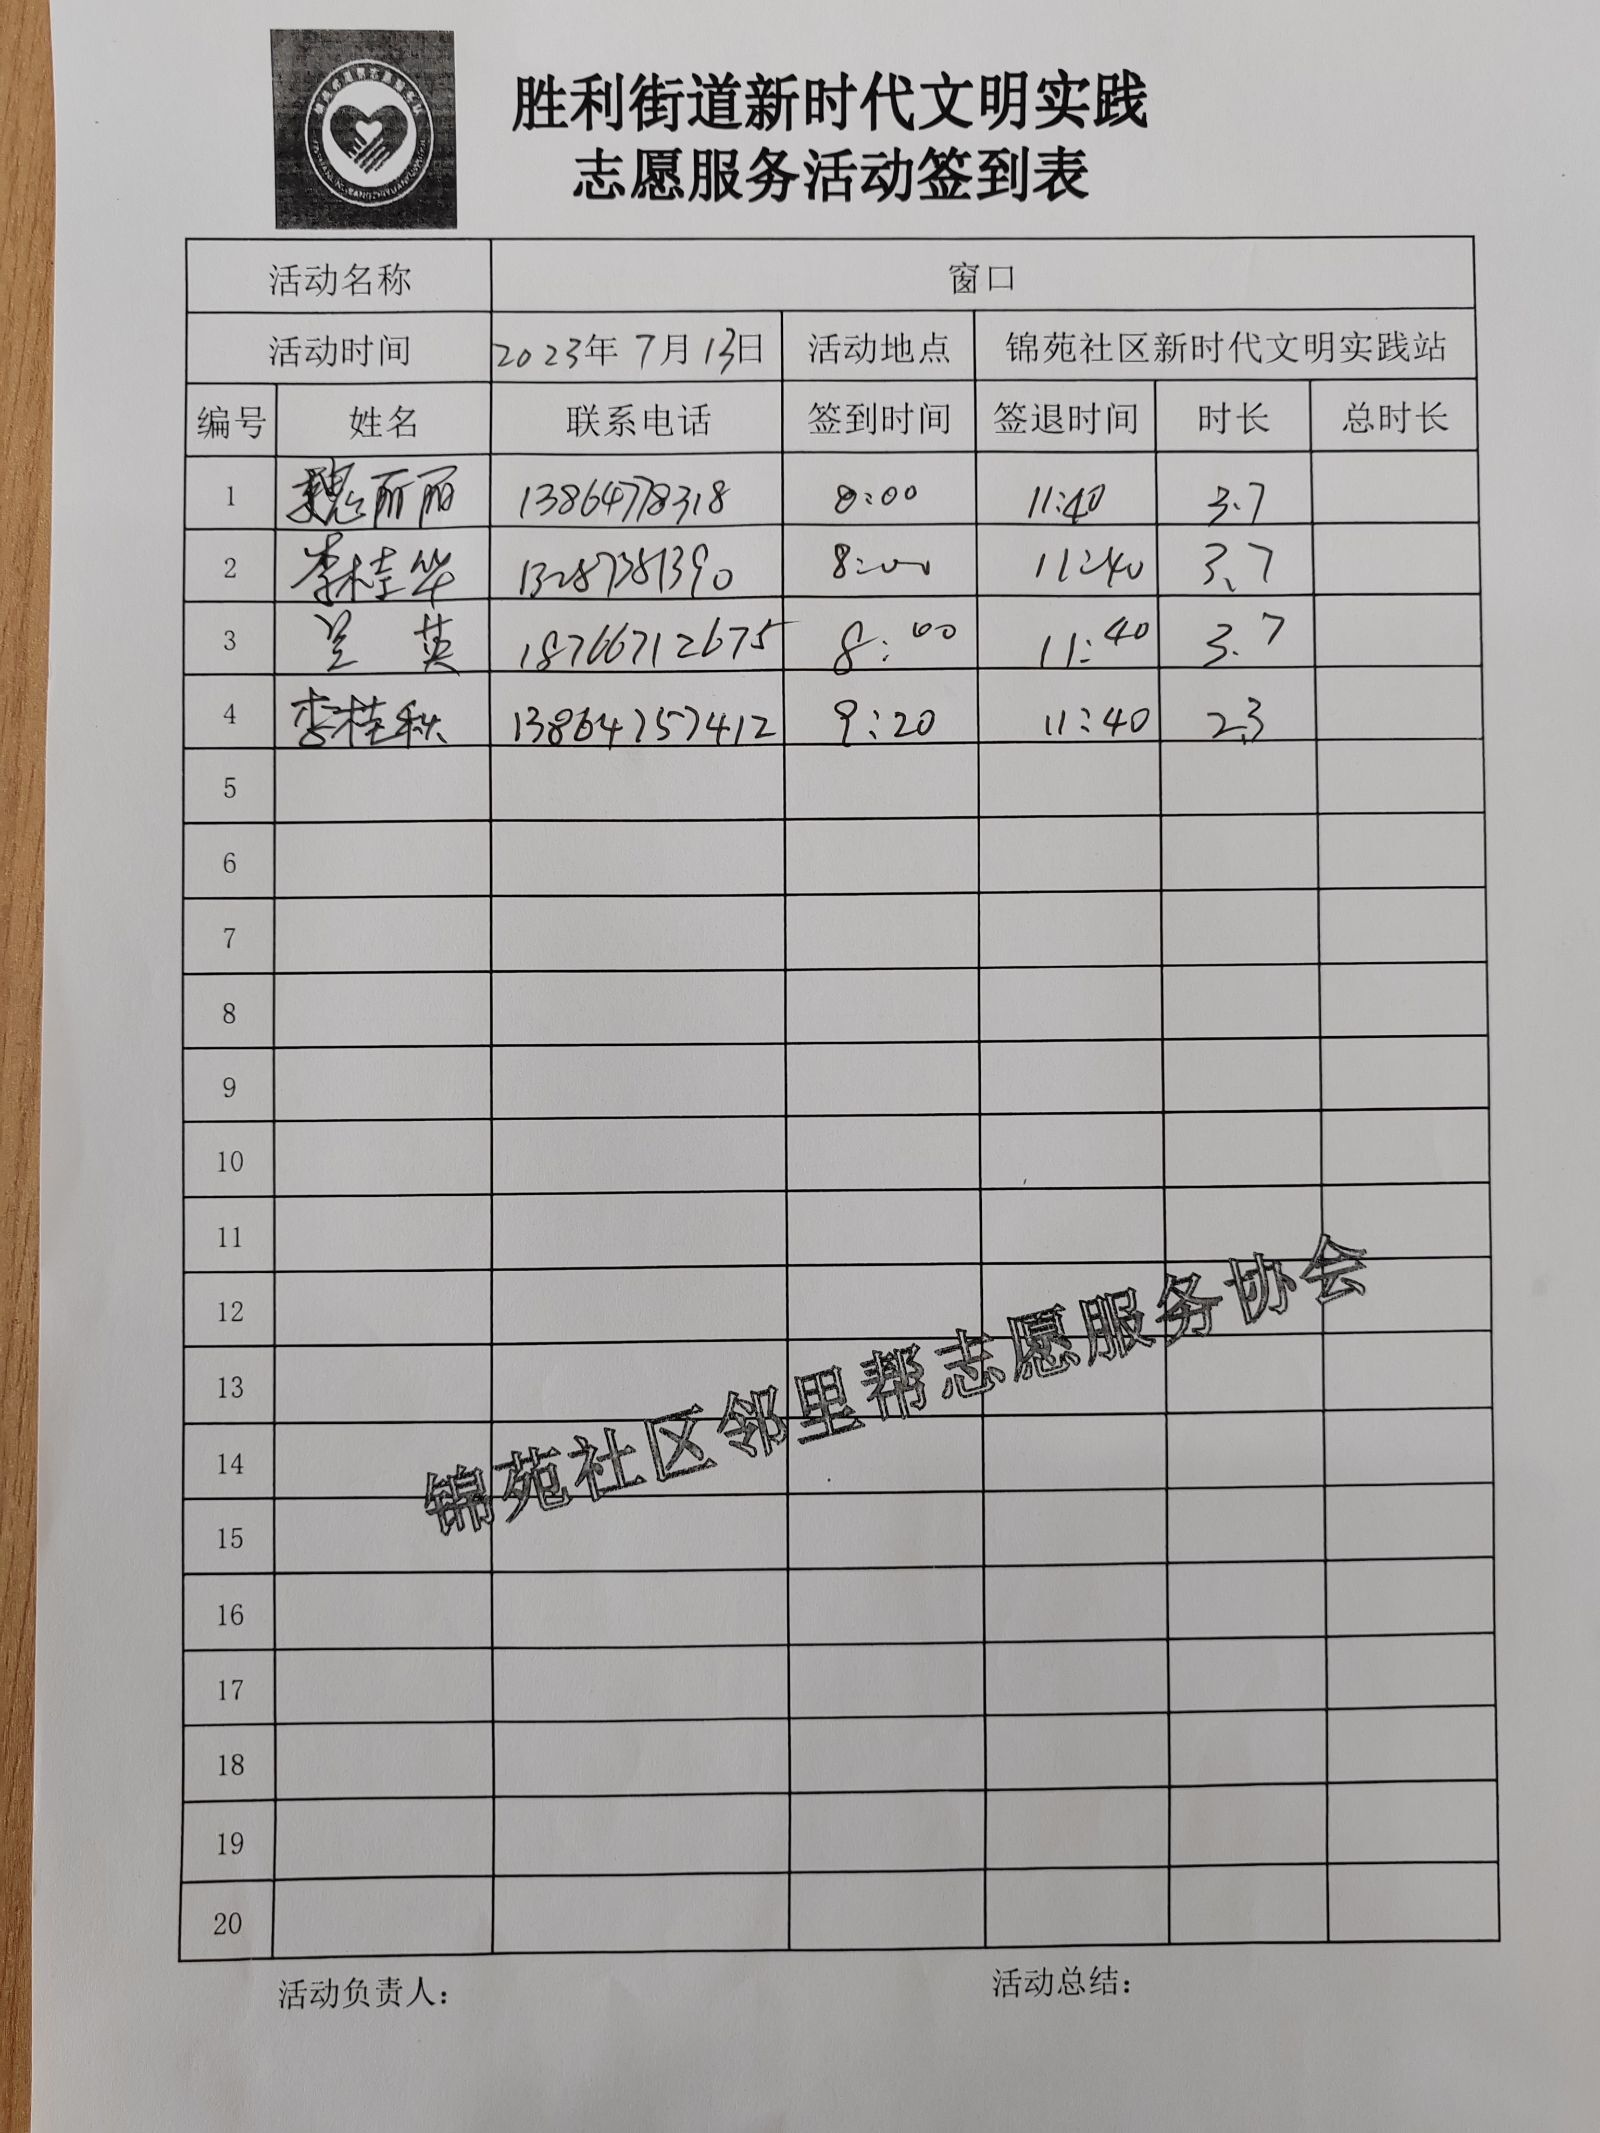 胜利街道新时代文明实践
志愿服务活动签到表
活动名称 窗口
活动时间 2023年 7月 13日 活动地点 锦苑社区新时代文明实践站
编号 姓名 联系电话 签到时间 签退时间 时长 总时长
1 魏丽丽 13864778318 8:00 11:40 3.7
2 李桂华 13287381390 8:00 11:40 3.7
3 吴英 18766712675 8:00 11:40 3.7
4 李桂秋 13864757412 9:20 11:40 2.3
5
6
7
8
9
10
11
12
13
14
15
16
17
18
19
20
锦苑社区邻里帮志愿服务协会
活动负责人: 活动总结: